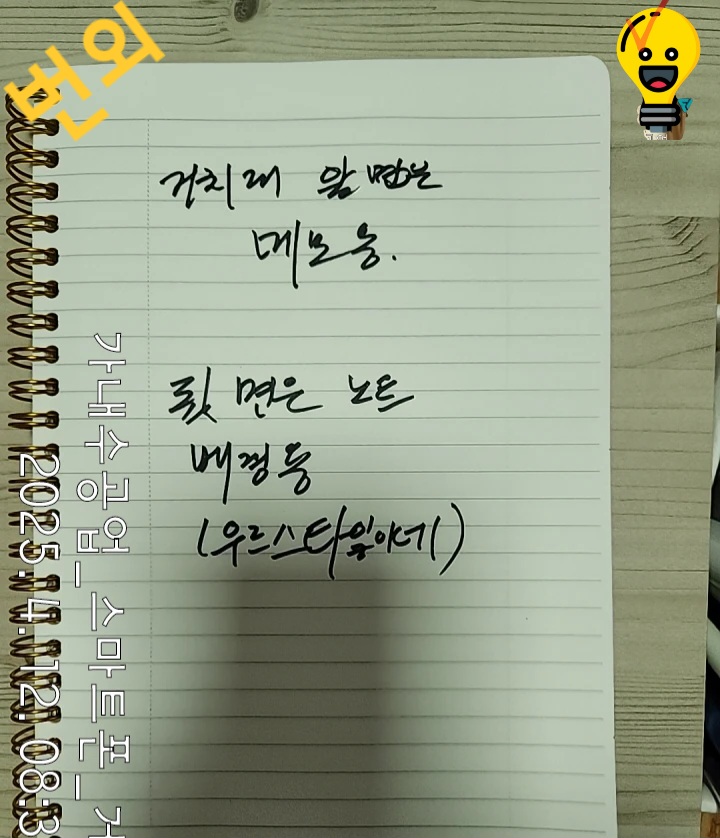 번외
거치대 앞면은
메모용.
뒷면은 노트
배경용
가내수공업_스마트폰_거
2025.4.12. 08:3